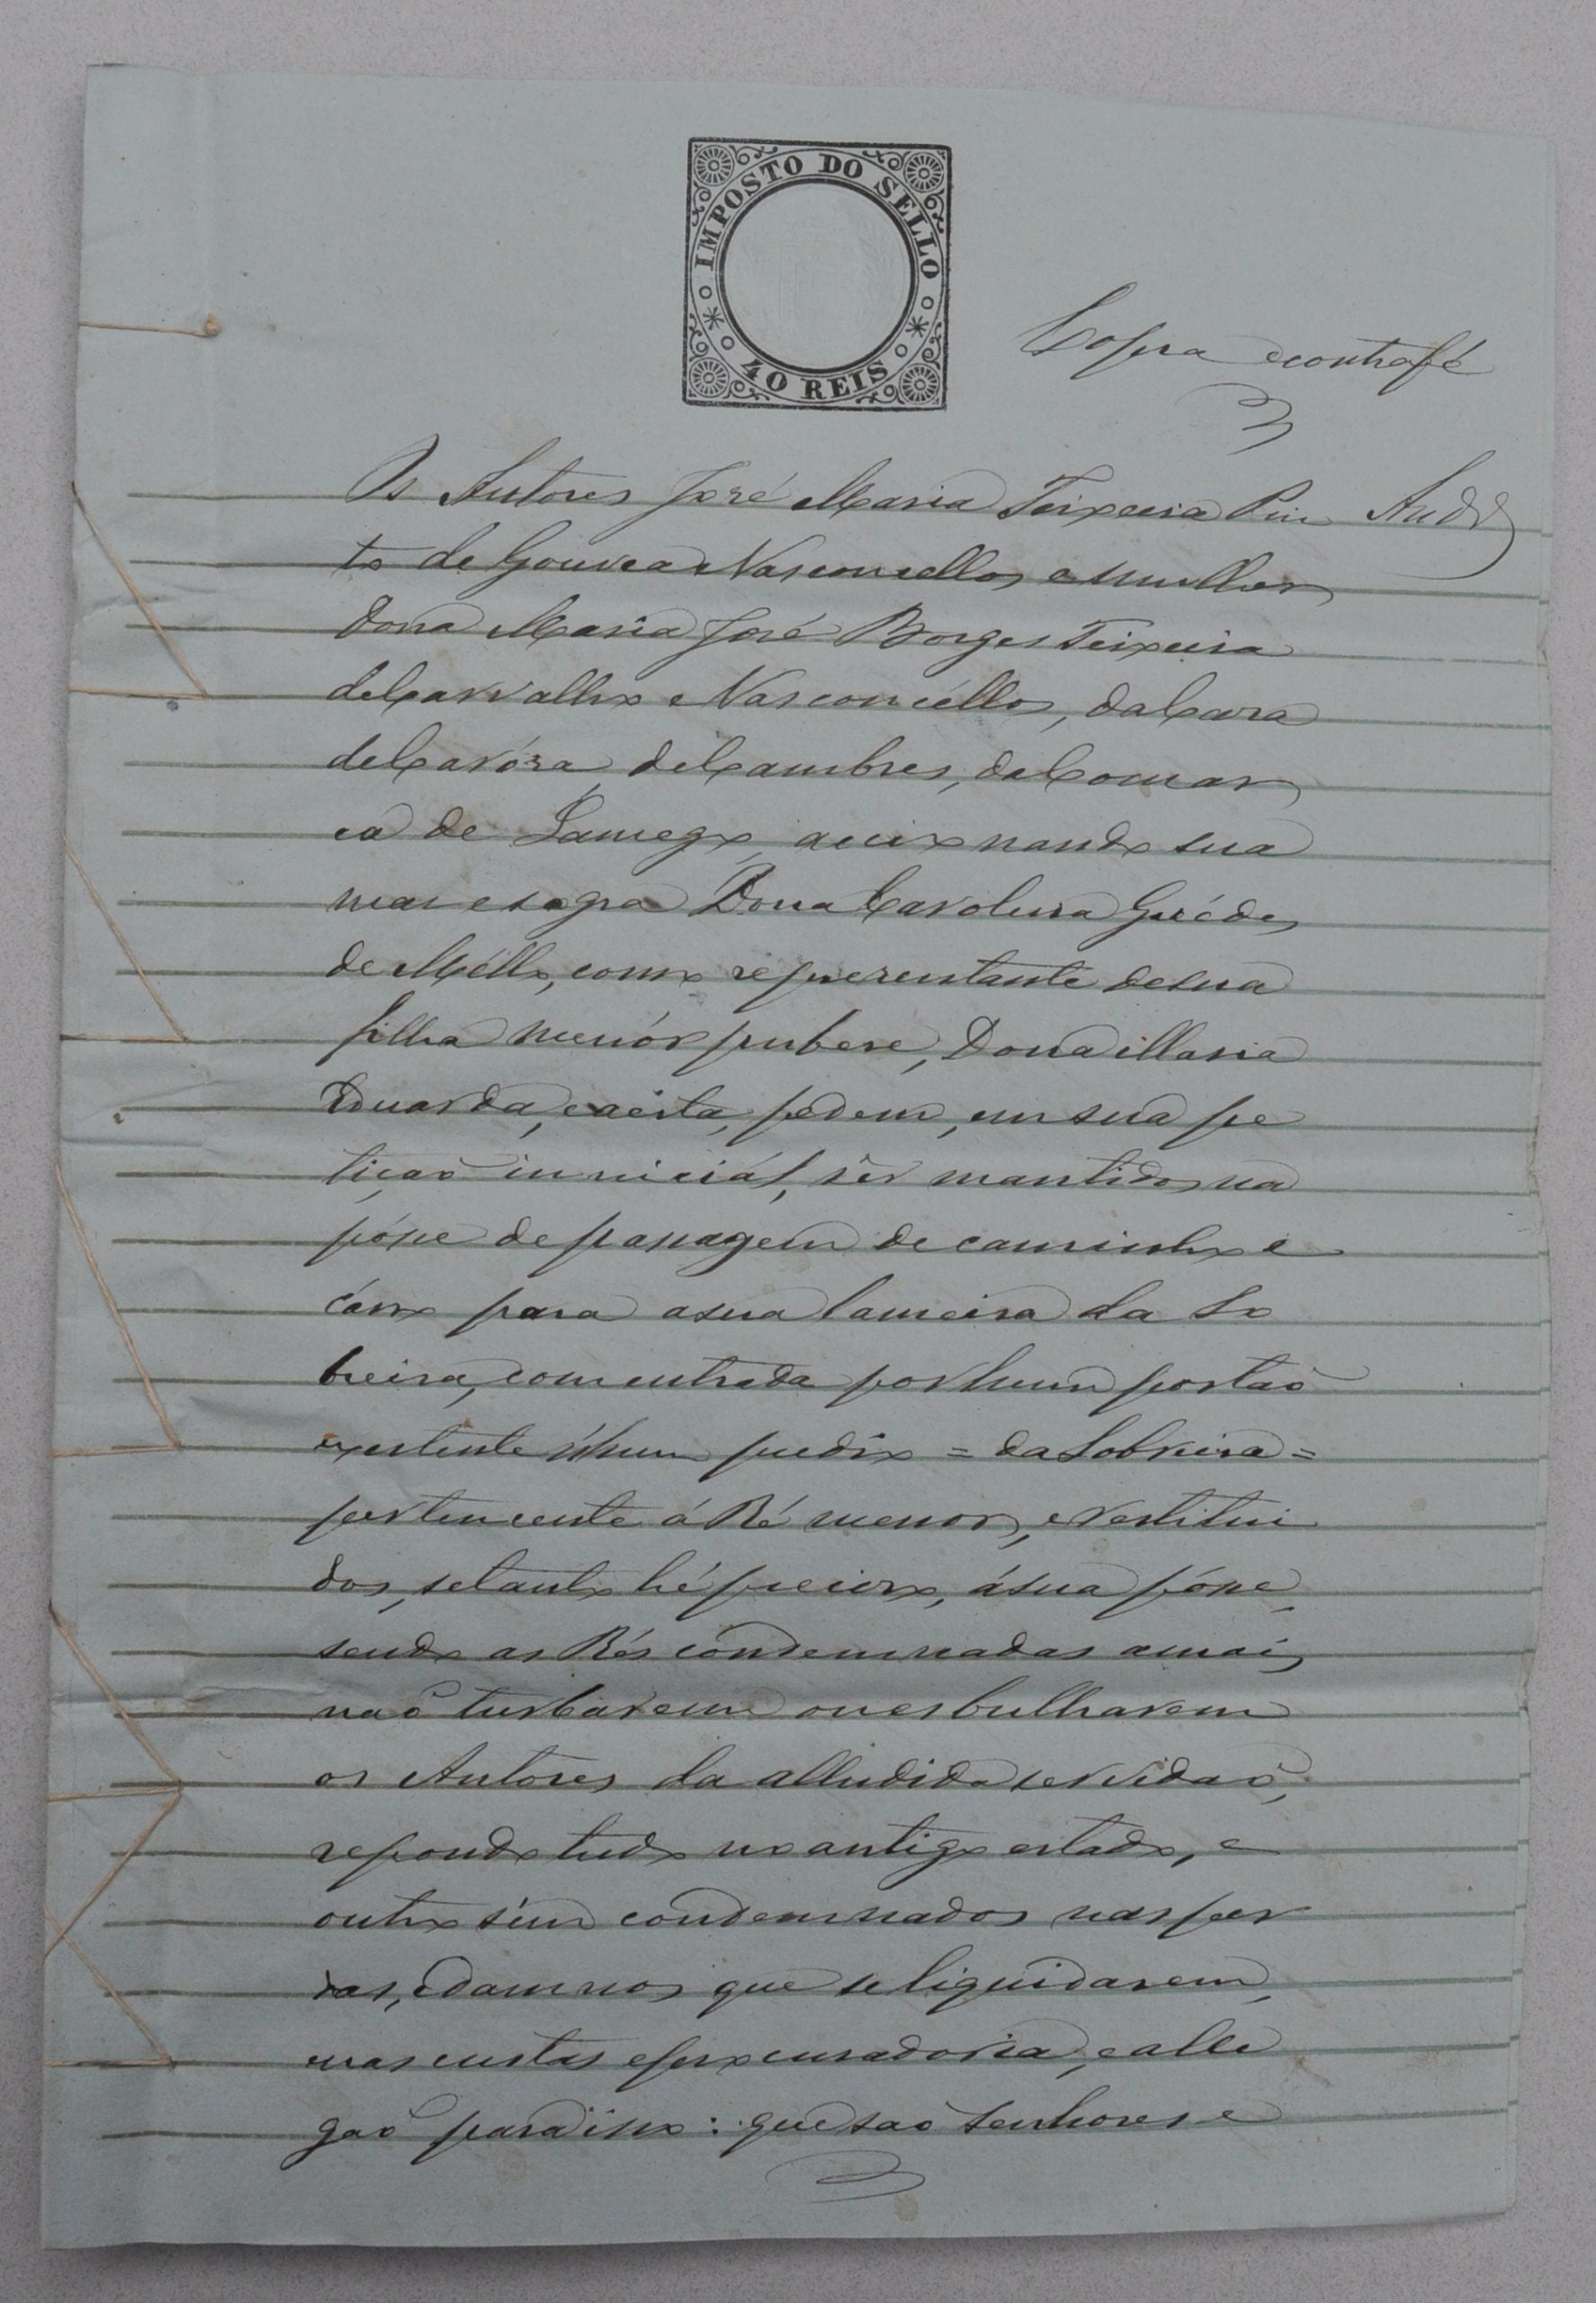 IMPOSTO DO SELLO
40 REIS
Copia e contrafé
Os Autores José Maria Teixeira Pin
to de Gouvea Vasconcellos e mulher
Dona Maria José Borges Teixeira
de Carvalho e Vasconcéllos, da Casa
de Cavóra de Cambres, da Comar
ca de Lamego, acionando sua
mai e sogra Dona Carolina Guédes
de Méllo, como representante de sua
filha menór pubere, Dona Maria
Eduarda, e a esta, pedem, em sua pe
tiçaõ inniciál, sêr mantidos na
pósse de passagem de caminho e
cárro para a sua lameira da So
breira, com entrada por hum portaõ
existente n'hum predio = da Sobreira =
pertencente á Ré menor, e restitui
dos, se tanto hé precizo, á sua pósse,
sendo as Rés condemnadas a mais
naõ turbarem ou esbulharem
os Autores da alludida servidaõ,
repondo tudo no antigo estado, e
outro sim condemnados nas per
das, e damnos que se liquidarem,
nas custas e procuradoria, e alle
gaõ para isso: que saõ senhores e